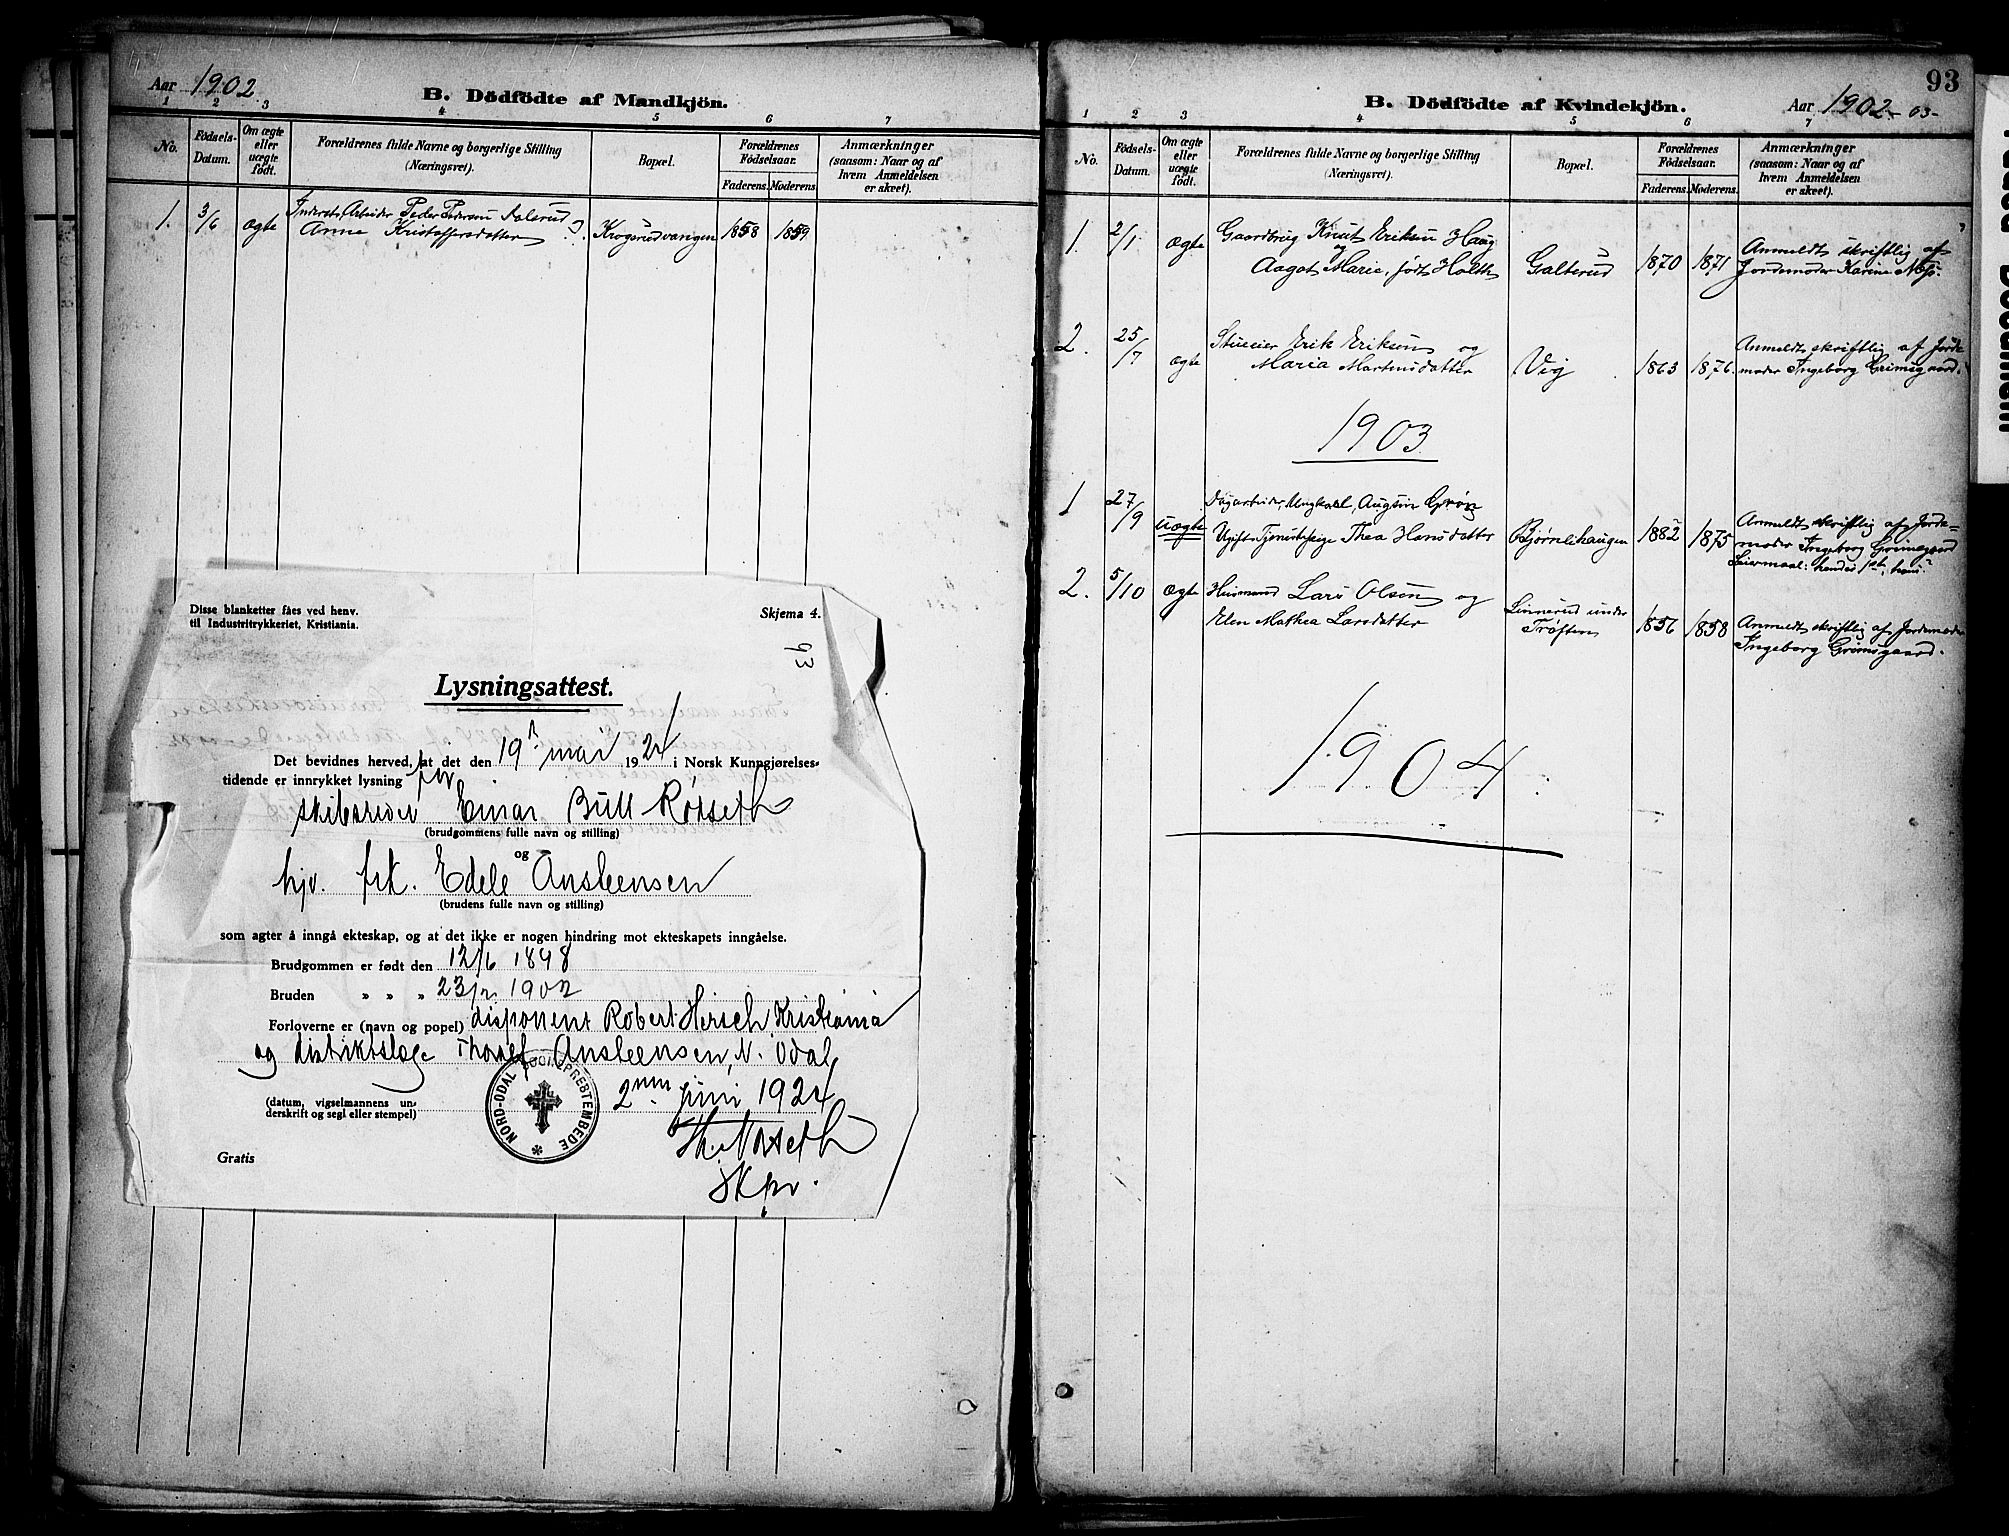 Aar 1902
B. Dödfödte af Mandkjön.
1 2 3 4 5 6 7
No.
Födsels-
Datum.
Om ægte
eller
uægte
födt.
Forældrenes fulde Navne og borgerlige Stilling
(Næringsvei).
Bopæl.
Forældrenes
Födselsaar.
Faderens. Moderens.
Anmærkninger
(saasom: Naar og af
hvem Anmeldelsen
er skeet).
1. 3/6 ægte
Arbeider Peder Pedersen
Anna Kristoffersdatter
Krogsrudvangen 1858 1859
Disse blanketter fåes ved henv.
til Industritrykkeriet, Kristiania.
Skjema 4.
93
Lysningsattest.
Det bevidnes herved, at det den 19. mai 1924 i Norsk Kunngjørelses-
tidende er innrykket lysning for
skibsreder Einar Bull Røsseth
(brudgommens fulle navn og stilling)
og
hjv. frk. Edele Ansteensen
(brudens fulle navn og stilling)
som agter å inngå ekteskap, og at det ikke er nogen hindring mot ekteskapets inngåelse.
Brudgommen er født den 12/6 1898
Bruden " " " 1902
Forloverne er (navn og popel) disponent Robert Hirsch, Kristiania
og distriktslæge Ansteensen, N. Odal
(datum, vigselmannens un-
derskrift og segl eller stempel)
2 juni 1924
NORD-ODAL SOGNEPREBTEMBEDE
Gratis
93
B. Dödfödte af Kvindekjön.
Aar 1902-03-
1 2 3 4 5 6 7
No.
Födsels-
Datum.
Om ægte
eller
uægte
födt.
Forældrenes fulde Navne og borgerlige Stilling
(Næringsvei).
Bopæl.
Forældrenes
Födselsaar.
Faderens. Moderens.
Anmærkninger
(saasom: Naar og af
hvem Anmeldelsen
er skeet).
1. 2/1 ægte
Gaardbrug Knut Eriksen Haug
og
Aagot Marie, født Holth
Galterud 1870 1871
Anmeldt skriftlig af
Jordemoder Karine Næs.
2. 25/7 ægte
Stueeier Erik Eriksen og
Maria Martinsdatter
Vig 1863 1876.
Anmeldt skriftlig af Jorde-
moder Ingeborg Grimsgaard.
1903
1 27/9 uægte
Dagarbeider, Ungkarl, August Grøn
Ugift Tjenestepige Thea Hansdatter
Bjørnlihaugen 1882 1875
Anmeldt skriftlig af Jorde-
moder Ingeborg Grimsgaard
Leiermaal: hendes 1st, hans ?
2. 5/10 ægte
Husmand Lars Olsen og
Elen Mathea Larsdatter
Linnerud under
Trøften
1856 1858
Anmeldt skriftlig af Jordemoder
Ingeborg Grimsgaard.
1904